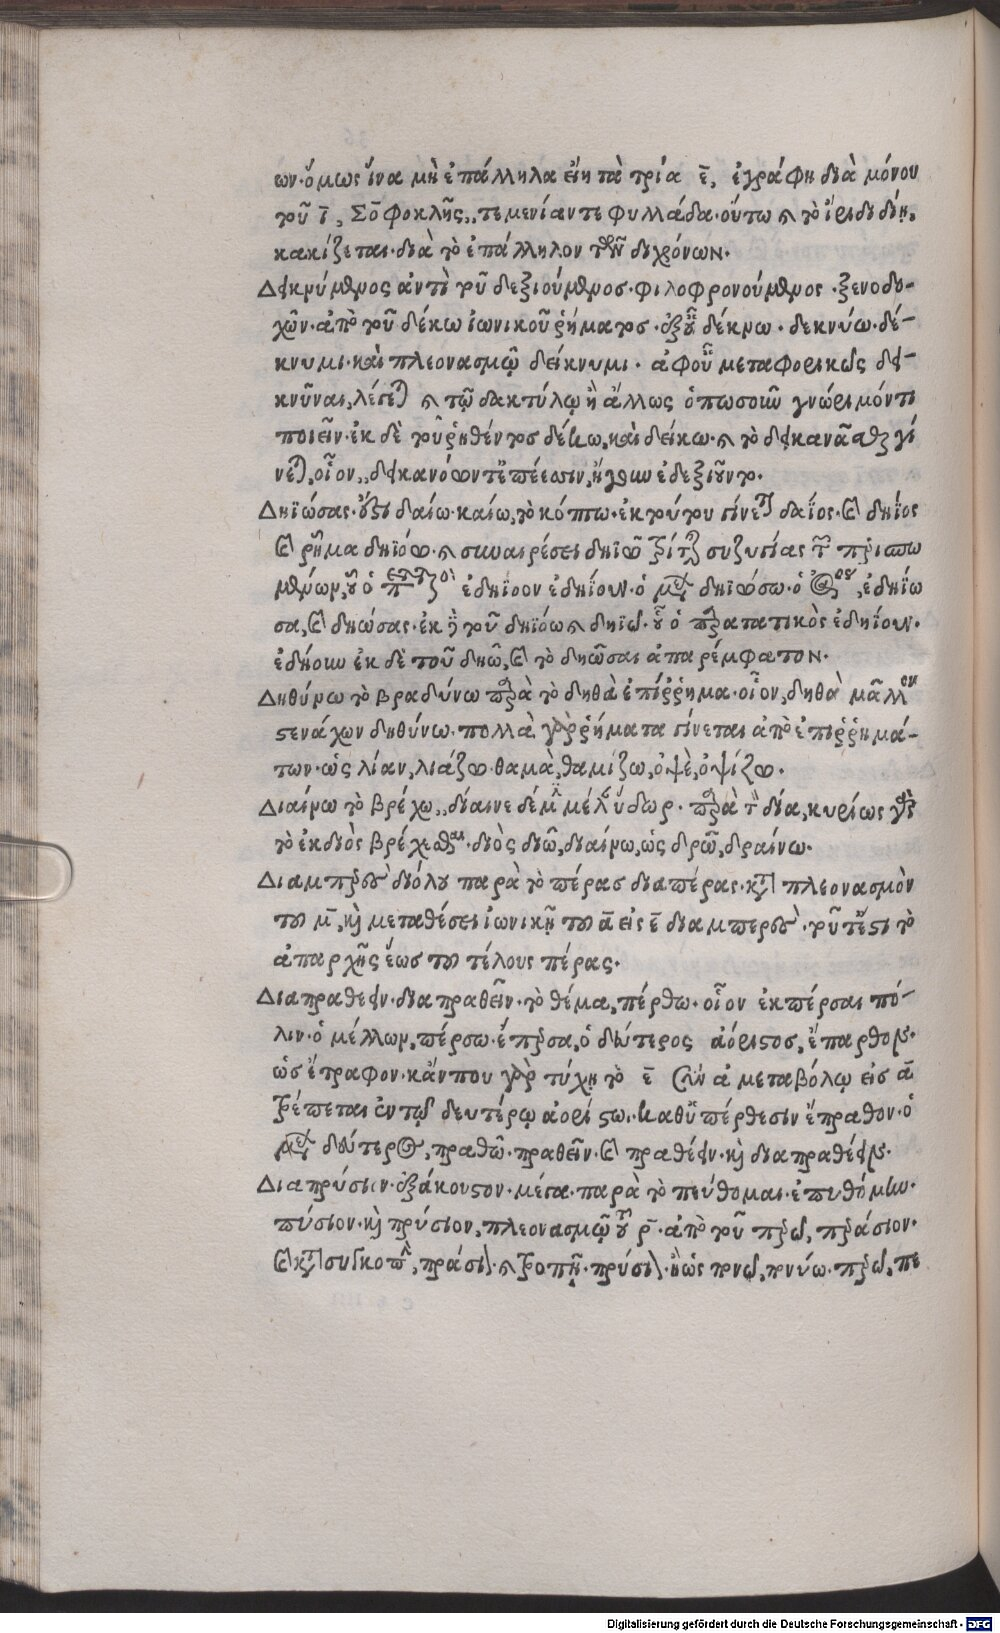 ων· ὅμως ἵνα μὴ ἐπάλληλα εἴη τὰ τρία ε̄, ἐγράφη διὰ μόνου
τοῦ ῑ, Σοφοκλῆς,, τεμενίαν τε φυλλάδα· οὕτω καὶ τὸ ἴφι διιδύῃ,
κακίζεται· διὰ τὸ ἐπάλληλον τῶν διχρόνων.
Δεικνύμενος ἀντὶ τοῦ δεξιούμενος· φιλοφρονούμενος· ξενοδο-
χῶν· ἀπὸ τοῦ δέκω ἰωνικοῦ ῥήματος· ἐξ οὗ δέκνω· δεκνύω· δέ-
κνυμι· καὶ πλεονασμῷ δείκνυμι· ἀφ' οὗ μεταφορικῶς δει-
κνῦναι, λέγεται καὶ τῷ δακτύλῳ ἢ ἄλλως ὁπωσοῦν γνώριμόν τι
ποιεῖν· ἐκ δὲ τοῦ ῥηθέντος δέκω, καὶ δείκω· καὶ τὸ δεικανᾶσθαι γί
νεται, οἷον,, δεικανόωντ' ἐπέεσσιν, ἤγουν ἐδεξιοῦντο.
Δηϊώσας· ἔστι δαίω· καίω, τὸ κόπτω· ἐκ τούτου γίνεται δαΐος· καὶ δηΐος
καὶ ῥῆμα δηϊόω· καὶ συναιρέσει δηϊῶ τρίτης συζυγίας τῶν περισπω
μένων, οὗ ὁ παρατατικὸς ἐδηΐοον ἐδηΐουν· ὁ μέλλων δηϊώσω· ὁ ἀόριστος, ἐδηΐω
σα, καὶ δηώσας· ἐκ γὰρ τοῦ δηϊόω καὶ δηϊῶ· οὗ ὁ παρατατικὸς ἐδηΐουν·
ἐδῄουν ἐκ δὲ τοῦ δηῶ, καὶ τὸ δηῶσαι ἀπαρέμφατον.
Δηθύνω τὸ βραδύνω παρὰ τὸ δηθὰ ἐπίῤῥημα· οἷον, δηθὰ μᾶλλον
στενάχων δηθύνω· πολλὰ γὰρ ῥήματα γίνεται ἀπὸ ἐπιῤῥημά-
των· ὡς λίαν, λιάζω· θαμὰ, θαμίζω, ὀψὲ, ὀψίζω.
Διαίνω τὸ βρέχω,, δίαινε δέ μιν μέλαν ὕδωρ· παρὰ τὸ δία, κυρίως γὰρ
τὸ ἐκ διὸς βρέχεσθαι· διὸς διῶ, διαίνω, ὡς δρῶ, δραίνω.
Διαμπερὲς διόλου παρὰ τὸ πέρας διαπέρας· κατὰ πλεονασμὸν
τοῦ μ̄, καὶ μεταθέσει ἰωνικῇ τοῦ ᾱ εἰς ε̄ διαμπερὲς· τουτέστι τὸ
ἀπαρχῆς ἕως τοῦ τέλους πέρας.
Διαπραθέειν· διαπραθεῖν· τὸ θέμα, πέρθω· οἷον ἐκπέρσαι πό-
λιν· ὁ μέλλων, πέρσω· ἔπερσα, ὁ δεύτερος ἀόριστος, ἔπαρθον·
ὡς ἔτραφον· κἄν που γὰρ τύχῃ τὸ ε̄ σὺν ἀμεταβόλῳ εἰς ᾱ
τρέπεται ἐν τῷ δευτέρῳ ἀορίστῳ· καθ' ὑπέρθεσιν ἔπραθον· ὁ
μέλλων δεύτερος, πραθῶ· πραθεῖν· καὶ πραθέειν· καὶ διαπραθέειν·
Διαπρύσιον· ἐξάκουστον· μέγα· παρὰ τὸ πεύθομαι· ἐπυθόμην·
πύσιον· καὶ πρύσιον, πλεονασμῷ τοῦ ρ̄· ἀπὸ τοῦ περῶ, περάσιον·
καὶ κατὰ συγκοπὴν, πράσιον· καὶ τροπῇ· πρύσιον· ἢ ὡς πνῶ, πνύω· περῶ, πε